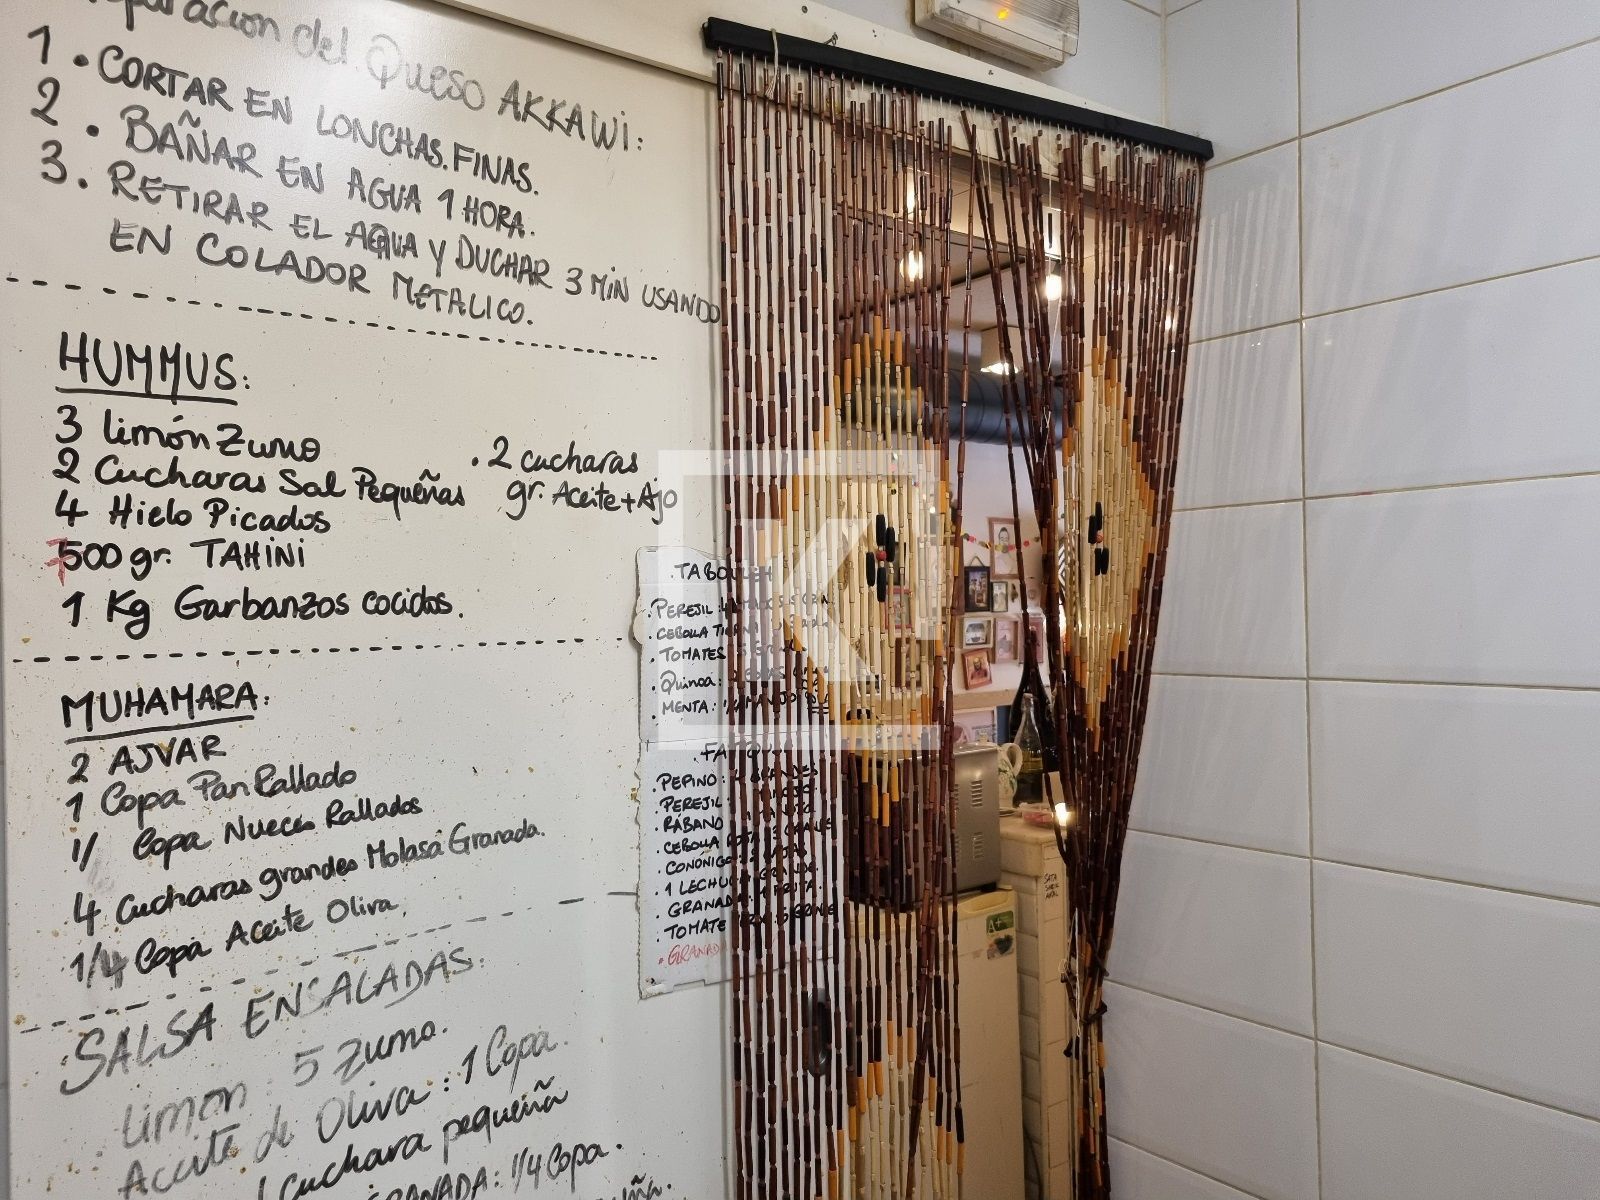 del Queso AKKAWI:
1. CORTAR EN LONCHAS.FINAS.
2. BAÑAR EN AGUA 1 HORA.
3. RETIRAR EL AGUA Y DUCHAR 3 MIN USANDO
EN COLADOR METALICO.
HUMMUS:
3 limón Zumo
2 Cucharas Sal Pequeñas
4 Hielo Picados
500 gr. TAHINI
1 Kg Garbanzos cocidos.
. 2 cucharas
gr. Aceite + Ajo
MUHAMARA:
2 AJVAR
1 Copa Pan Rallado
1/ Copa Nueces Rallados
4 Cucharas grandes Molasa Granada.
1/4 Copa Aceite Oliva.
SALSA ENSALADAS:
limón 5 Zumo.
Aceite de Oliva : 1 Copa.
cuchara pequeña
GRANADA: 1/4 Copa.
. TABOULEH
. PEREJIL:
. CEBOLLA
. TOMATES
. Quinoa:
. MENTA:
. PEPINO: GRANDES
. PEREJIL:
. RÁBANO
. CEBOLLA
. CONÓNIGO
. 1 LECHUGA GRANDE
. GRANADA FRUTA.
. TOMATE
. GRANADA
A+
K